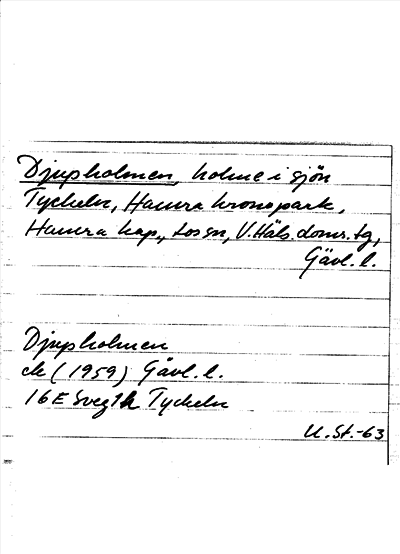 Djupholmen, holme i sjön
Tyckeln, Hamra kronopark,
Hamra kap., sosn, V. Häls. doms. tg,
Gävl. l.
Djupholmen
ek (1959) Gävl. l.
16E Sveg 1h Tyckeln
U. St. -63